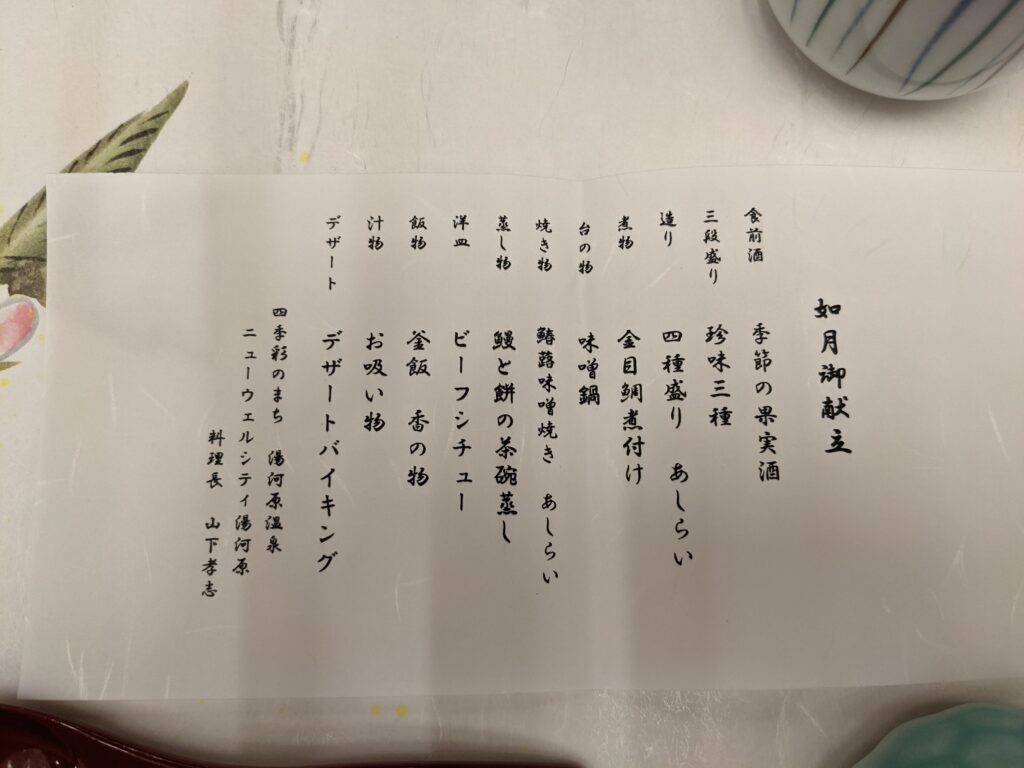 如月御献立
食前酒 季節の果実酒
三段盛り 珍味三種
造り 四種盛り あしらい
煮物 金目鯛煮付け
台の物 味噌鍋
焼き物 鰆蕗味噌焼き あしらい
蒸し物 鰻と餅の茶碗蒸し
洋皿 ビーフシチュー
飯物 釜飯 香の物
汁物 お吸い物
デザート デザートバイキング
四季彩のまち 湯河原温泉
ニューウェルシティ湯河原
料理長 山下孝志